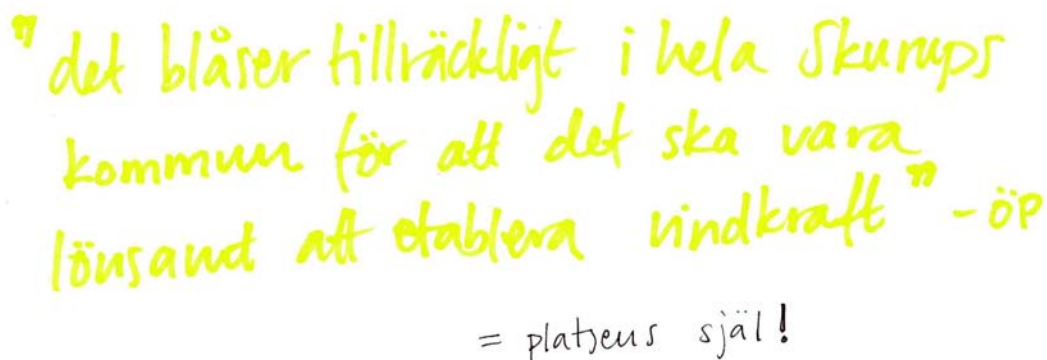 "det blåser tillräckligt i hela Skurups
kommun för att det ska vara
lönsamt att etablera vindkraft" - öp
= platsens själ!